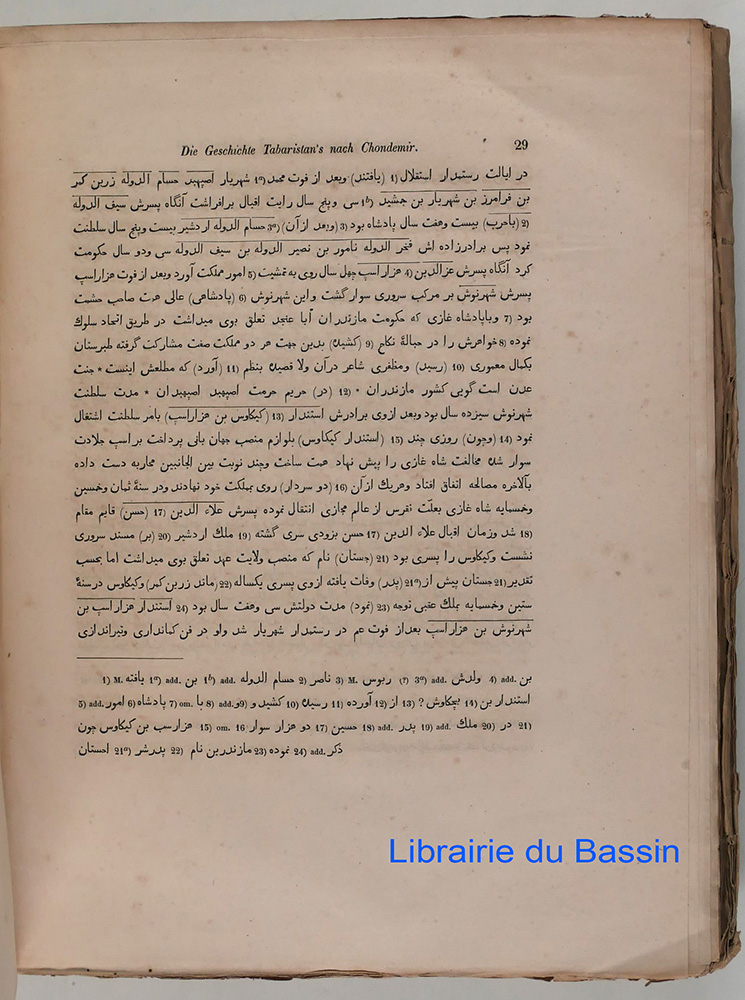 Die Geschichte Tabaristan's nach Chondemir. 29
در ایالت رستمدار استقلال (1 (یافتند) وبعد از فوت محمد (1ª شهریار اصپهبد حسام الدوله زرین کمر
بن فرامرز بن شهریار بن جمشید (1ᵇ سی وپنج سال رایت اقبال برافراشت آنگاه پسرش سیف الدوله
(2 (باحرب) بیست وهفت سال پادشاه بود (3 (وبعد ازآن) (3ª حسام الدوله اردشیر بیست وپنج سال سلطنت
نمود پس برادرزاده اش فخر الدوله نامور بن نصیر الدوله بن سیف الدوله سی ودو سال حکومت
کرد آنگاه پسرش عزالدین (4 هزاراسپ چهل سال روی به تمشیت (5 امور مملکت آورد وبعد از فوت هزاراسپ
پسرش شهرنوش بر مرکب سروری سوار گشت واین شهرنوش (6 (پادشاهی) عالی همت صاحب حشمت
بود (7 وباپادشاه غازی که حکومت مازندران آبا عنجد تعلق بوی میداشت در طریق اتحاد سلوك
نموده (8 خواهرش را در حبالهٔ نکاح (9 (کشید) بدین جهت هر دو مملکت صفت مشارکت گرفته طبرستان
بکمال معموری (10 (رسید) ومظفری شاعر درآن ولا قصیده بنظم (11 (آورد) که مطلعش اینست * جنت
عدن است گویی کشور مازندران * (12 (در) حریم حرمت اصپهبد اصپهبدان * مدت سلطنت
شهرنوش سیزده سال بود وبعد ازوی برادرش استندار (13 (کیکاوس بن هزاراسپ) بامر سلطنت اشتغال
نمود (14 (وچون) روزی چند (15 (استندار کیکاوس) بلوازم منصب جهان بانی پرداخت براسپ جلادت
سوار شده مخالفت شاه غازی را پیش نهاد همت ساخت وچند نوبت بین الجانبین محاربه دست داده
بالآخره مصالحه اتفاق افتاد وهریك ازآن (16 (دو سردار) روی بمملکت خود نهادند ودر سنهٔ ثمان وخمسین
وخمسمایه شاه غازی بعلّت نقرس از عالم مجازی انتقال نموده پسرش علاء الدین (17 (حسن) قایم مقام
(18 شد وزمان اقبال علاء الدین (17 حسن بزودی سری گشته (19 ملك اردشیر (20 (بر) مسند سروری
نشست وکیکاوس را پسری بود (21 (جستان) نام که منصب ولایت عهد تعلق بوی میداشت اما بحسب
تقدیر (21 جستان پیش از (21ª (پدر) وفات یافته ازوی پسری یکساله (22 (ماند زرین کمر) وکیکاوس درسنهٔ
ستین وخمسمایه بملك عقبی توجه (23 (نمود) مدت دولتش سی وهفت سال بود (24 استندار هزار اسپ بن
شهرنوش بن هزاراسپ بعداز فوت عم در رستمدار شهریار شد واو در فن کمانداری وتیراندازی
1) M. یافته 1ª) add. بن 1ᵇ) add. حسام الدوله 2) ناصر 3) M. ربوس (?) 3ª) add. ولدش 4) add. بن
5) add. امور 6) پادشاه 7) om. با 8) add. و 9) کشیدو 10) رسیده 11) آورده 12) از 13) ? بجکاوش 14) استندار بن
کیکاوس چون 15) om. هزارسب بن 16) دو هزار سوار 17) حسین 18) add. پدر 19) add. ملك 20) در 21)
احستان 21ª) پدرشر 22) مازندربن نام 23) نموده 24) add. ذکر
Librairie du Bassin